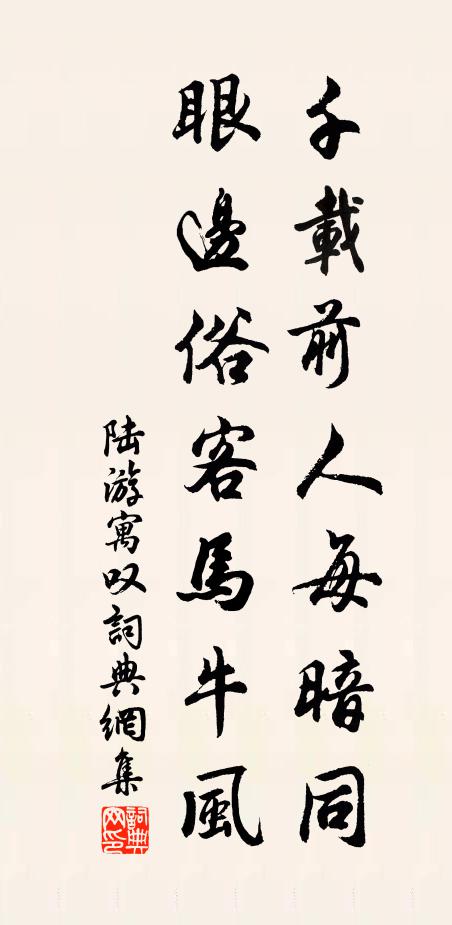 千載前人每暗同
眼邊俗客馬牛風
陆游寓叹詞典網集
詞典網印